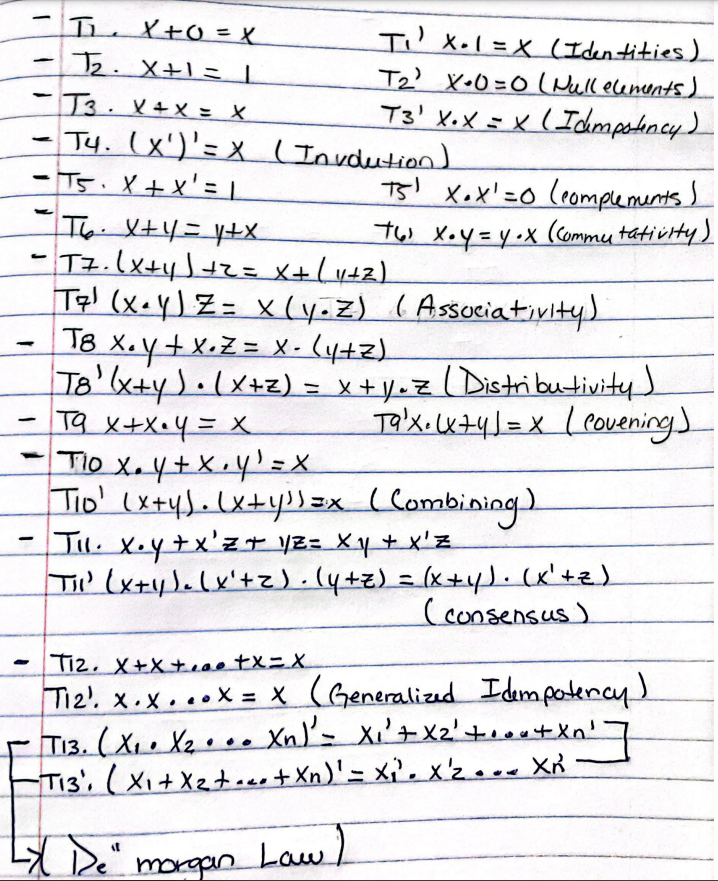 - T1. X+0 = X T1' X.1 = X (Identities)
- T2. X+1 = 1 T2' X.0=0 (Null elements)
- T3. X+X = X T3' X.X = X (Idempotency)
- T4. (X')' = X (Involution)
- T5. X + X' = 1 T5' X.X'=0 (complements)
- T6. X+Y = Y+X T6' X.Y = Y.X (Commutativity)
- T7. (X+Y)+Z = X+(Y+Z)
T7' (X.Y) Z = X (Y.Z) (Associativity)
- T8 X.Y + X.Z = X. (Y+Z)
T8' (X+Y) . (X+Z) = X + Y.Z (Distributivity)
- T9 X+X.Y = X T9' X.(X+Y) = X (Covening)
- T10 X.Y + X.Y' = X
T10' (X+Y). (X+Y')=X (Combining)
- T11. X.Y + X'Z + YZ= XY + X'Z
T11' (X+Y).(X'+Z) . (Y+Z) = (X+Y) . (X'+Z)
(consensus)
- T12. X+X+...+X=X
T12'. X.X...X = X (Generalized Idempotency)
T13. (X1 . X2 ... Xn)' = X1' + X2' +...+ Xn'
T13'. (X1+X2+...+Xn)' = X1' . X'2 ... Xn'
( De" morgan Law)